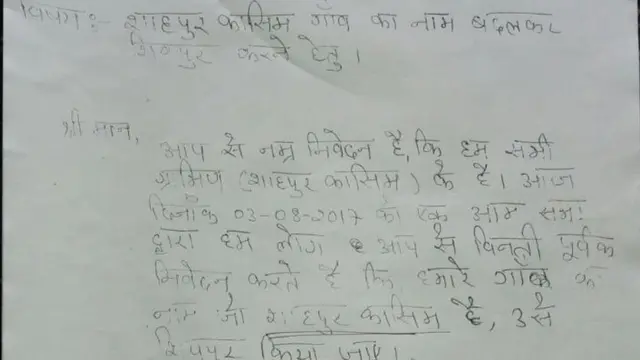 विषय:- शाहपुर कासिम गाँव का नाम बदलकर
शिवपुर करने हेतु।
श्री मान,
आप से नम्र निवेदन है, कि हम सभी
ग्रामिण (शाहपुर कासिम) के है। आज
दिनाँक 03-08-2017 को एक आम सभा
द्वारा हम लोग आप से विनती पूर्वक
निवेदन करते है कि हमारे गाव का
नाम जो शाहपुर कासिम है, उसे
शिवपुर किया जाए।